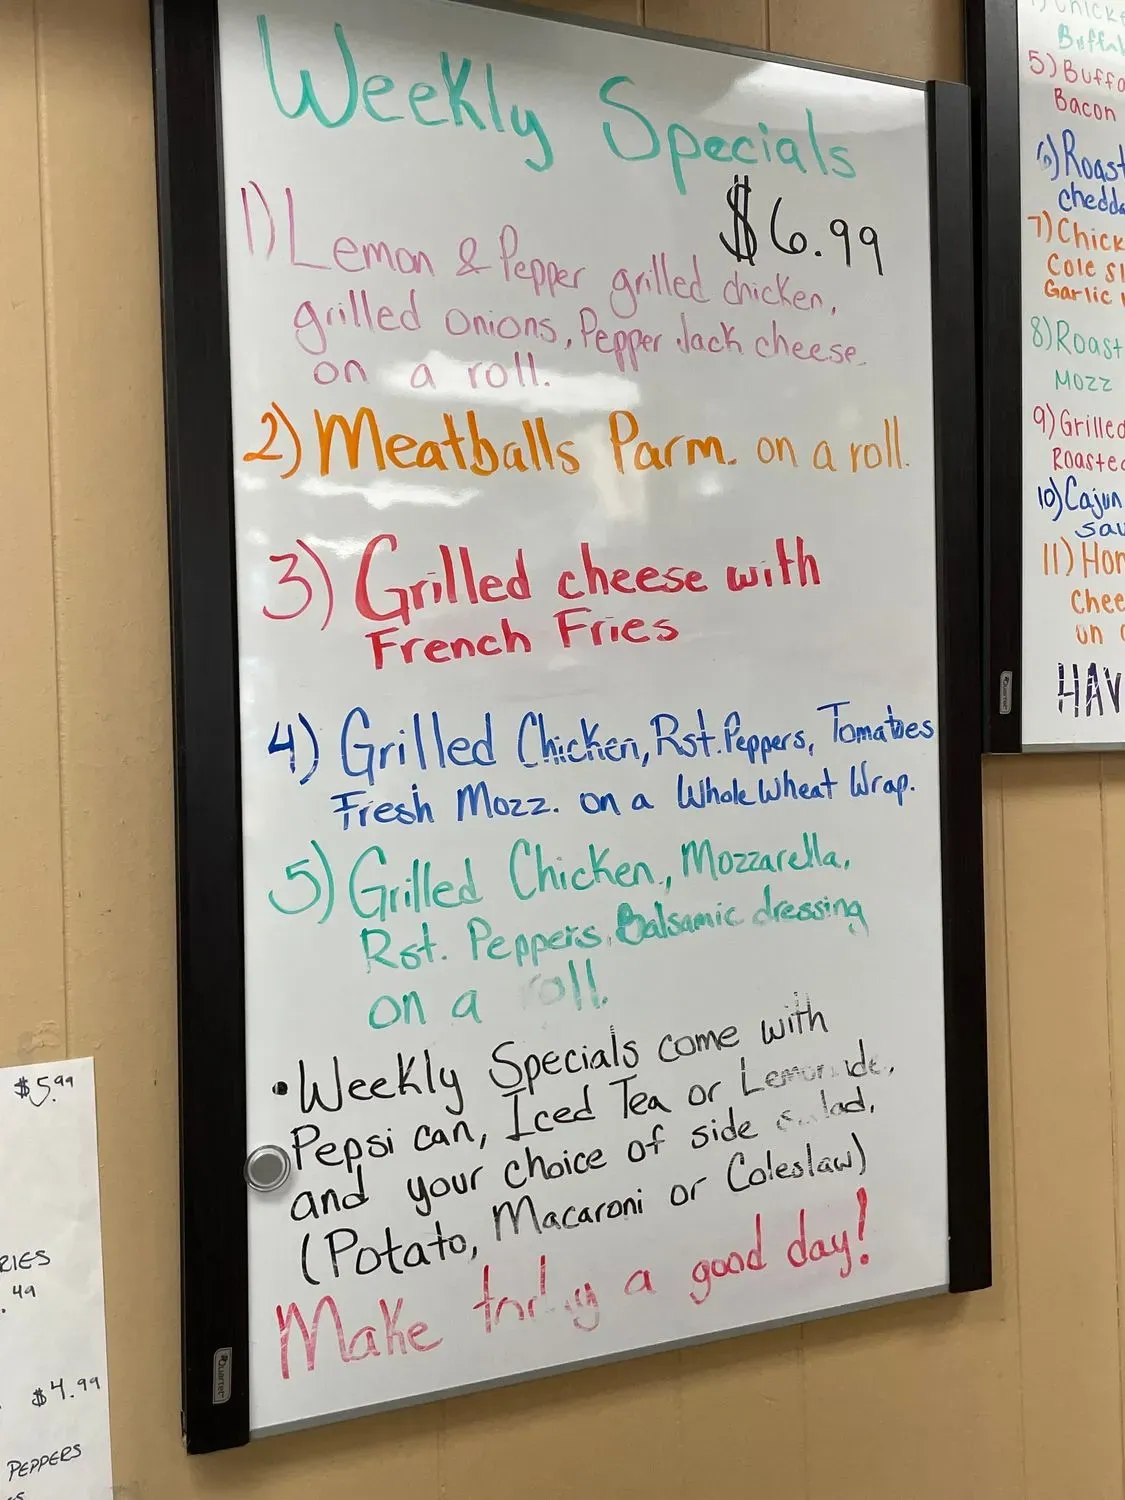 Weekly Specials
$6.99
1) Lemon & Pepper grilled chicken,
grilled onions, Pepper Jack cheese
on a roll.
2) Meatballs Parm. on a roll.
3) Grilled cheese with
French Fries
4) Grilled Chicken, Rst. Peppers, Tomatoes
Fresh Mozz. on a Whole Wheat Wrap.
5) Grilled Chicken, Mozzarella,
Rst. Peppers, Balsamic dressing
on a roll.
• Weekly Specials come with
Pepsi can, Iced Tea or Lemonade,
and your choice of side salad.
(Potato, Macaroni or Coleslaw)
Make a good day!
Quartet
Buffal
5) Buffa
Bacon
6) Roast
chedda
7) Chick
Cole Sl
Garlic
8) Roast
Mozz
9) Grilled
Roasted
10) Cajun
sau
11) Hon
Chee
on
HAV
Quartet
$5.99
RIES
.49
$4.99
PEPPERS